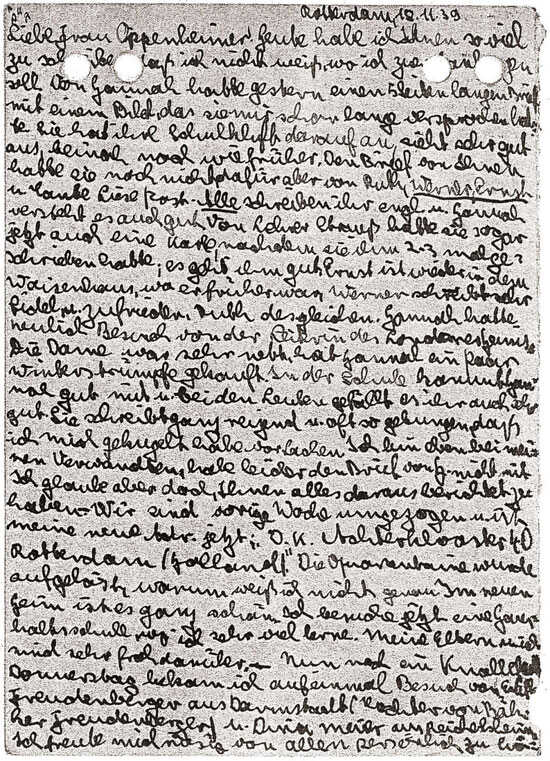 Rotterdam, 12.11.39
Liebe Frau Oppenheimer! Heute habe ich Ihnen so viel
zu daß ich nicht weiß, wo ich zuerst
soll. Von Hannah hatte gestern einen 5 Seiten langen Brief
mit einem Bild, das sie mir schon lange versprochen
te. Sie hat ihre Schulkluft darauf an, sieht sehr gut
aus, beinah noch wie früher. Den Brief von Ihnen
hatte sie noch nicht, dafür aber von Ruth, Werner, Ernst
u. Tante Liese Post. Alle schreiben ihr engl. u. Hannah
versteht es auch gut. Von Lehrer Strauß hatte sie sogar
jetzt auch eine Karte, nachdem sie ihm 2-3 mal ge-
schrieben hatte; es geht ihm gut. Ernst ist wieder in dem
Waisenhaus, wo er früher war, Werner schreibt sehr
fidel u. zufrieden, Ruth desgleichen. Hannah hatte
neulich Besuch von der Leiterin des
Die Dame war sehr nett, hat Hannah ein paar
Winterstrümpfe gekauft. In der Schule kommt Han-
nah gut mit u. bei den Leuten gefällt es ihr auch sehr
gut. Sie schreibt ganz reizend u. oft so gelungen, daß
ich mich gekugelt habe vor Lachen. Ich bin eben bei mei-
nen Verwandten, habe leider den Brief von H. nicht mit
Ich glaube aber doch, Ihnen alles daraus berichtet zu
haben. Wir sind vorige Woche umgezogen u. ist
meine neue Adr. jetzt: D. K. Achterklooster 40
Rotterdam (Holland)." Die Quarantaine wurde
aufgelöst, warum weiß ich nicht genau. Im neuen
Heim ist es ganz schön. Ich besuche jetzt eine Haus-
haltsschule, wo ich sehr viel lerne. Meine Eltern
sind sehr froh darüber. - Nun noch ein
Donnerstag bekam ich auf einmal Besuch von
Freudenberger aus Darmstadt (Tochter von
Freudenberger) u. Meier aus Reichelsheim
Ich freute mich von allen persönlich zu hö-